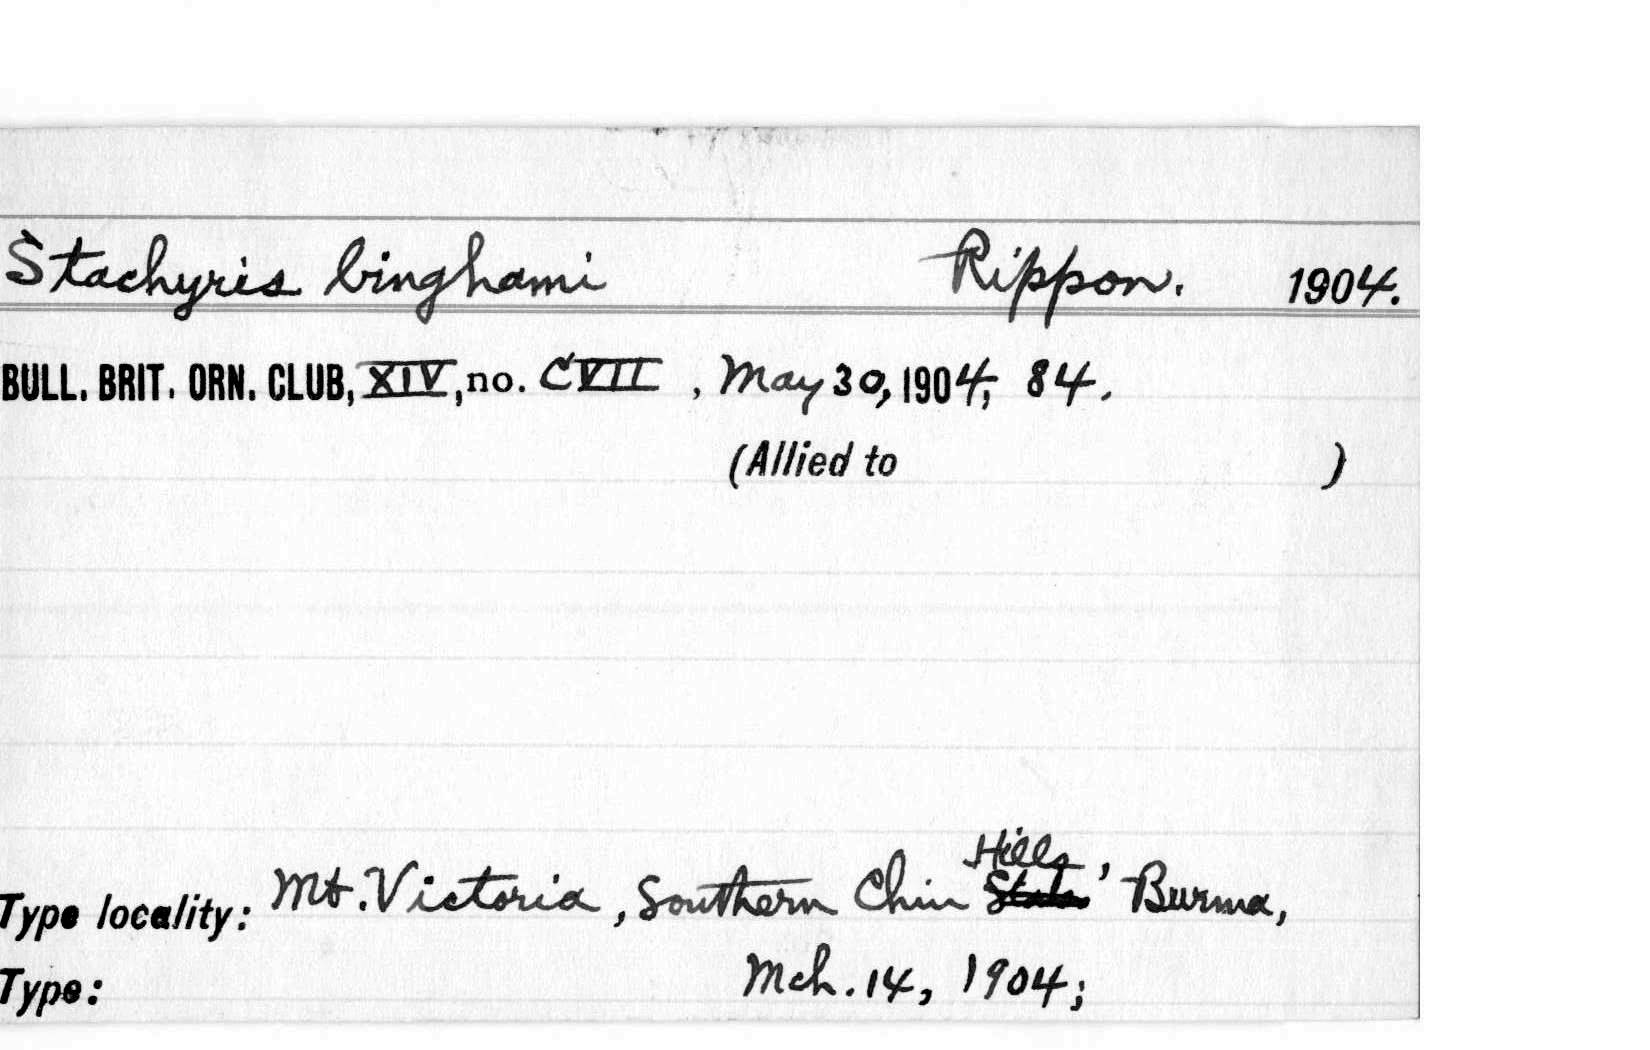 Stachyris binghami Rippon. 1904.
BULL. BRIT. ORN. CLUB, XIV, no. CVII , May 30, 1904; 84.
(Allied to )
Hills,
Type locality: Mt. Victoria, Southern Chin Burma,
Type: Mch. 14, 1904;